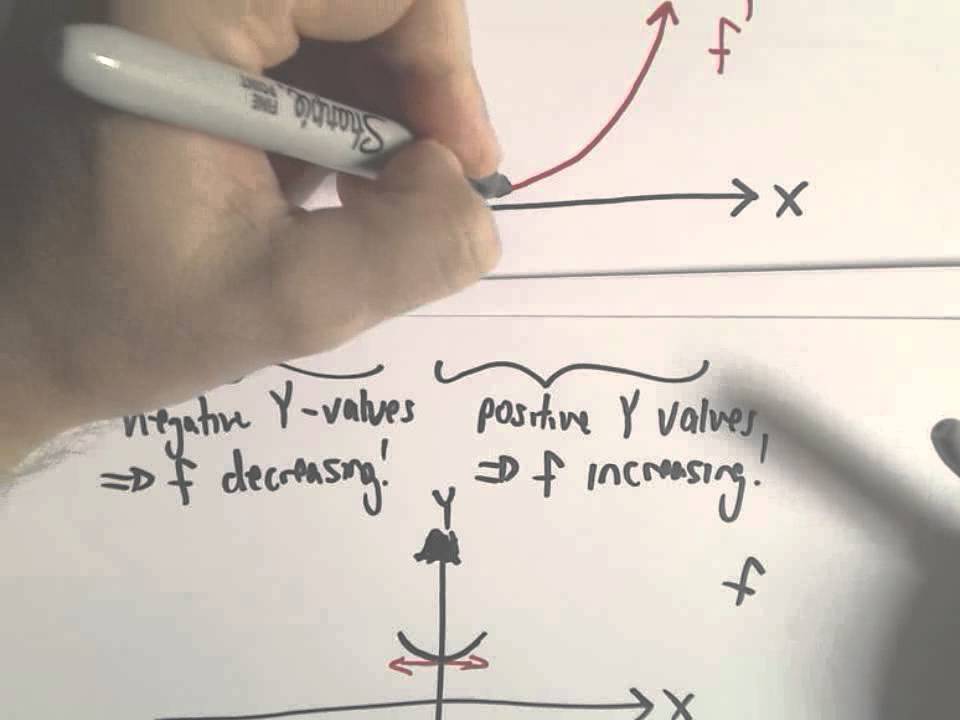 f'
Sharpie
FINE
POINT
X
negative Y-values
positive Y values,
⇒ f decreasing!
⇒ f increasing!
Y
f
X